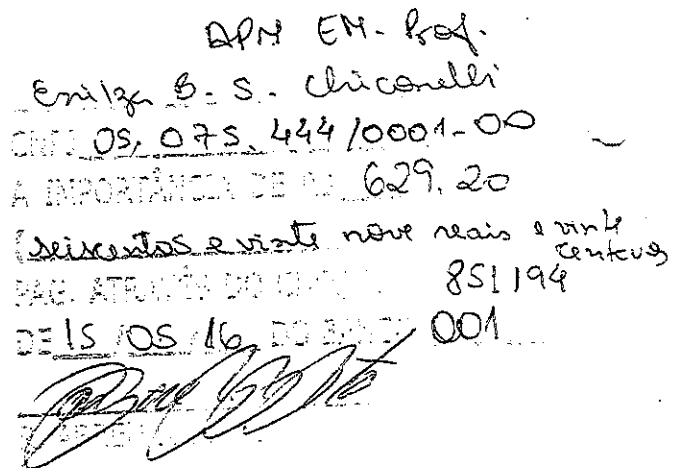 APM EM. Prof.
B. S. Chiconelli
CNPJ 05.075.444/0001-00
A IMPORTÂNCIA DE R$ 629,20
(seiscentos e vinte nove reais e vinte
centavos
PAG. ATRAVÉS DO 851194
DE 15/05/16 DO BANCO 001